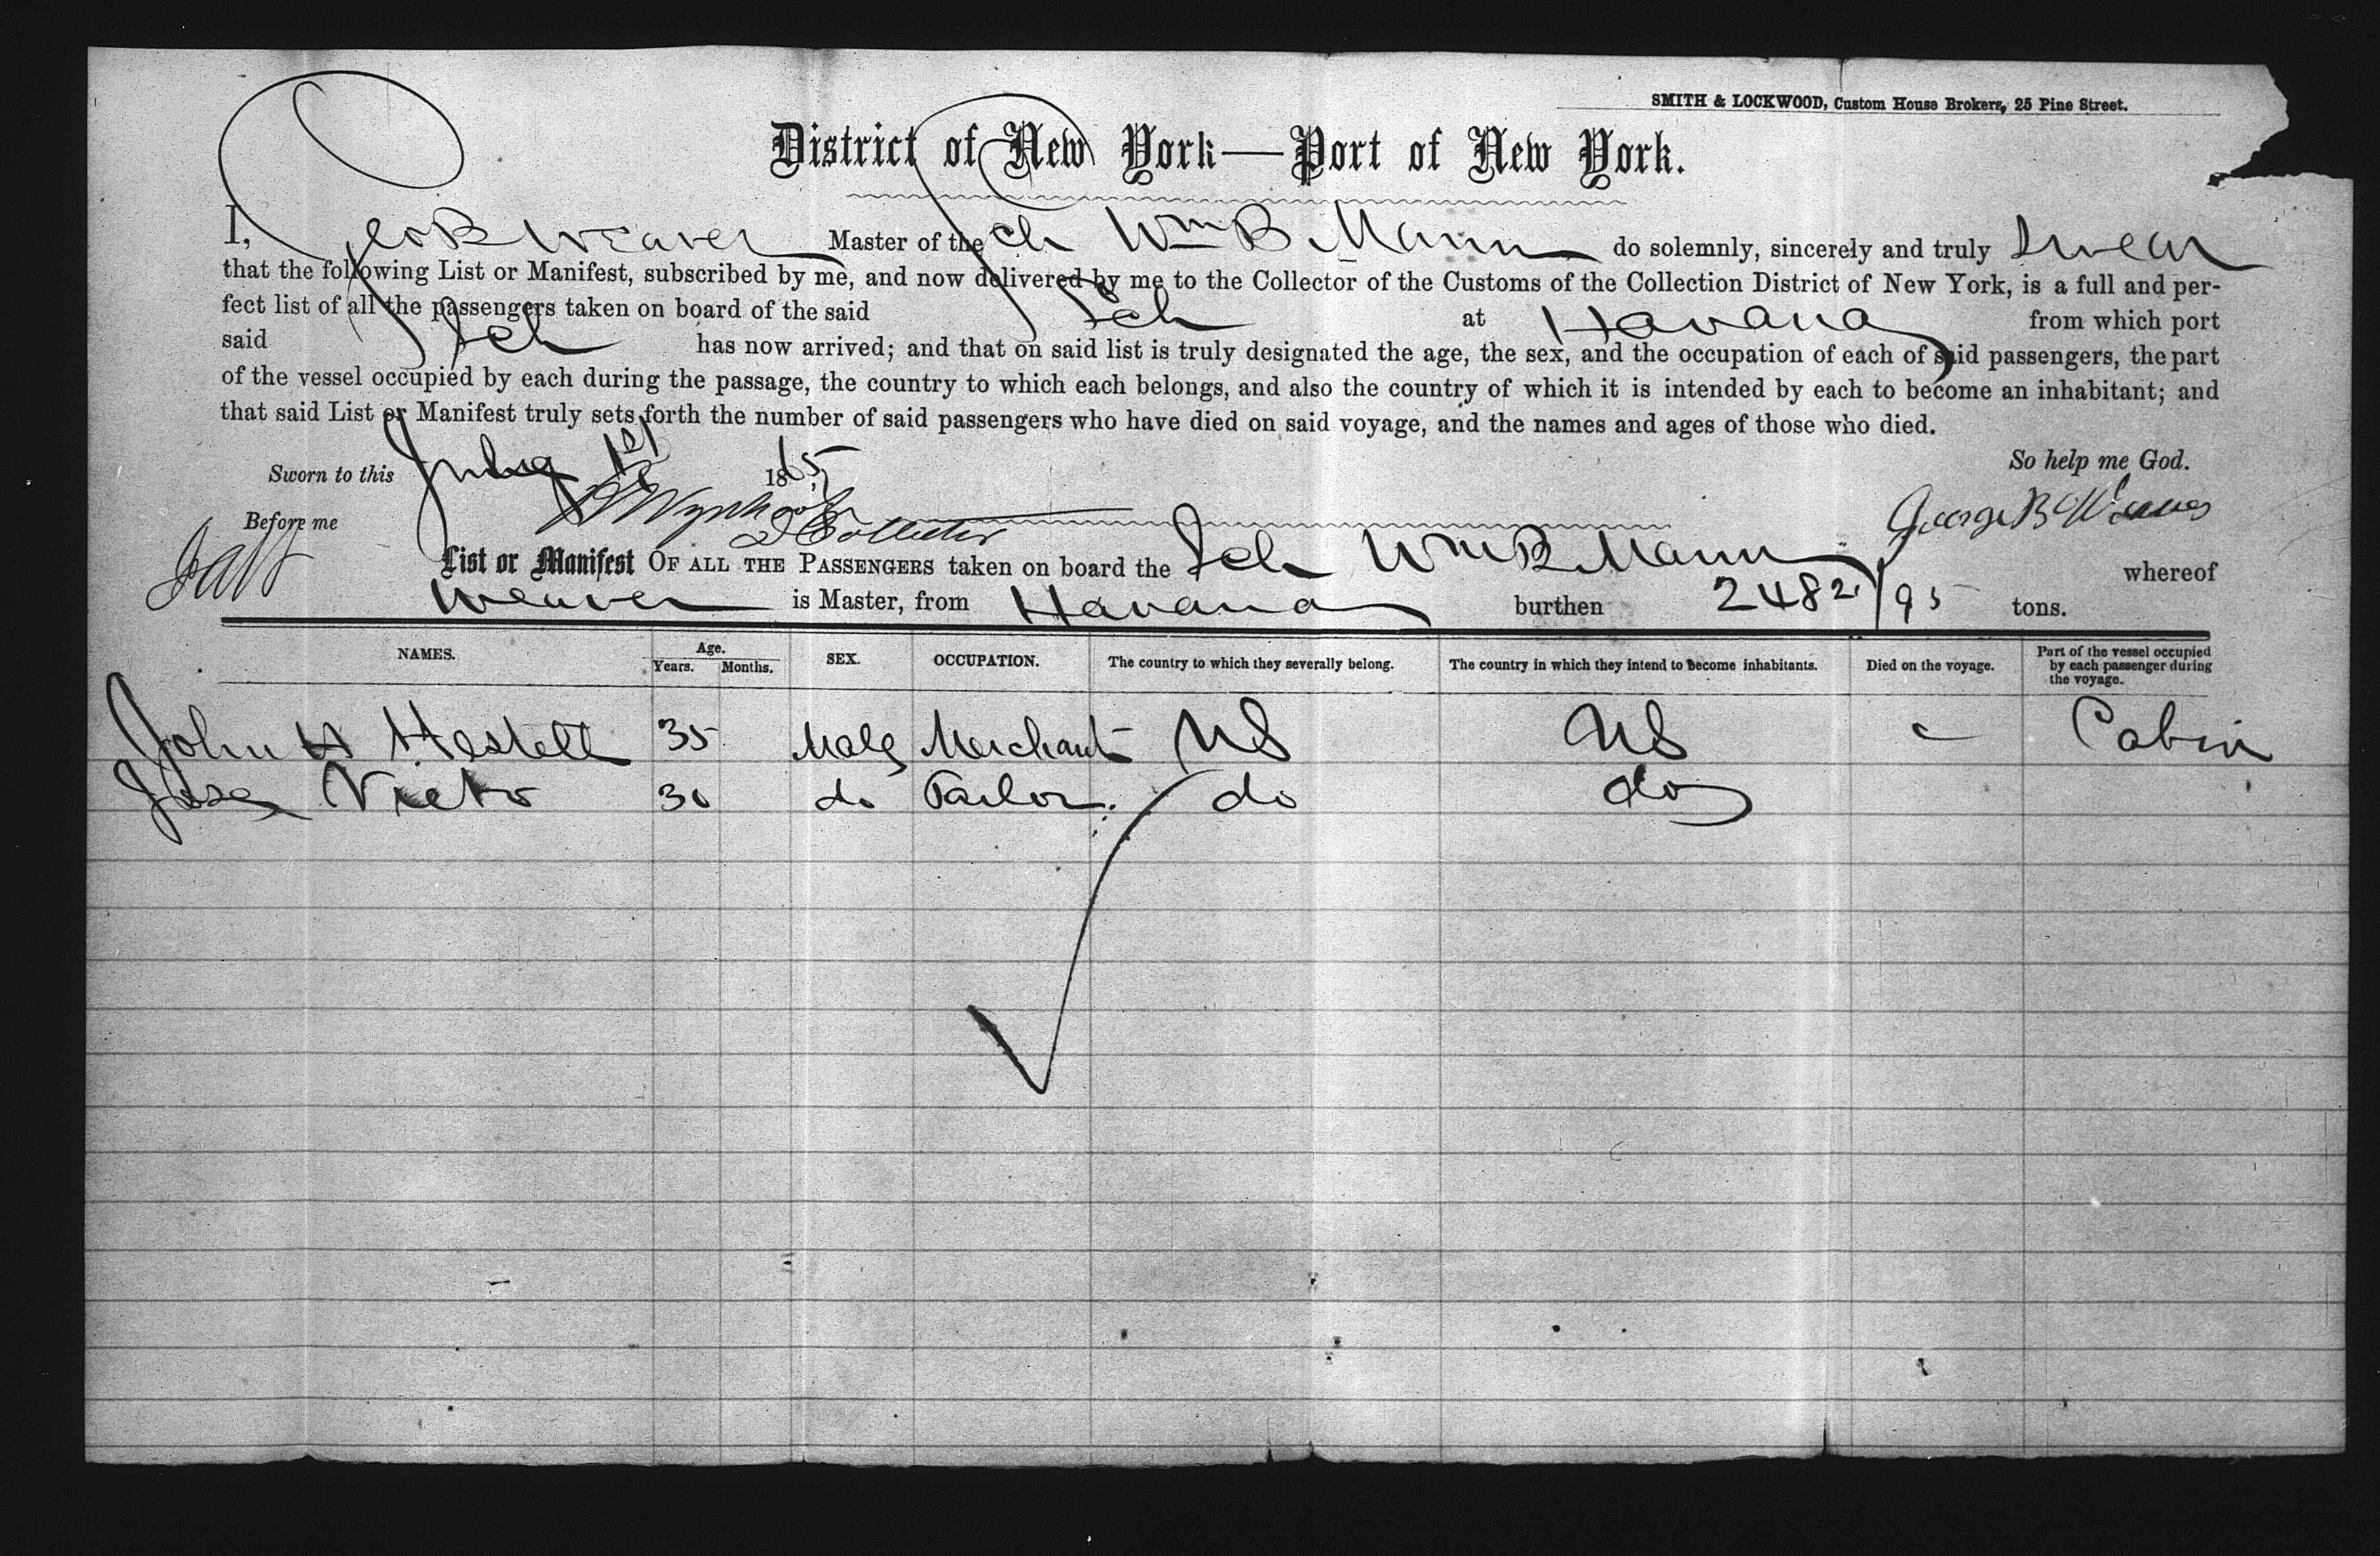 SMITH & LOCKWOOD, Custom House Brokers, 25 Pine Street.
District of New York—Port of New York.
I, Geo B Weaver Master of the Sch Wm B Mann do solemnly, sincerely and truly swear
that the following List or Manifest, subscribed by me, and now delivered by me to the Collector of the Customs of the Collection District of New York, is a full and per-
fect list of all the passengers taken on board of the said Sch at Havana from which port
said Sch has now arrived; and that on said list is truly designated the age, the sex, and the occupation of each of said passengers, the part
of the vessel occupied by each during the passage, the country to which each belongs, and also the country of which it is intended by each to become an inhabitant; and
that said List or Manifest truly sets forth the number of said passengers who have died on said voyage, and the names and ages of those who died.
Sworn to this July 1st 1865 So help me God.
Before me D Collector George B Weaver
List or Manifest OF ALL THE PASSENGERS taken on board the Sch Wm B Mann whereof
Weaver is Master, from Havana burthen 248 2/95 tons.
NAMES. Age. Years. Months. SEX. OCCUPATION. The country to which they severally belong. The country in which they intend to become inhabitants. Died on the voyage. Part of the vessel occupied by each passenger during the voyage.
John H 35 Male Merchant US US - Cabin
Jose Nieto 30 do Tailor do do